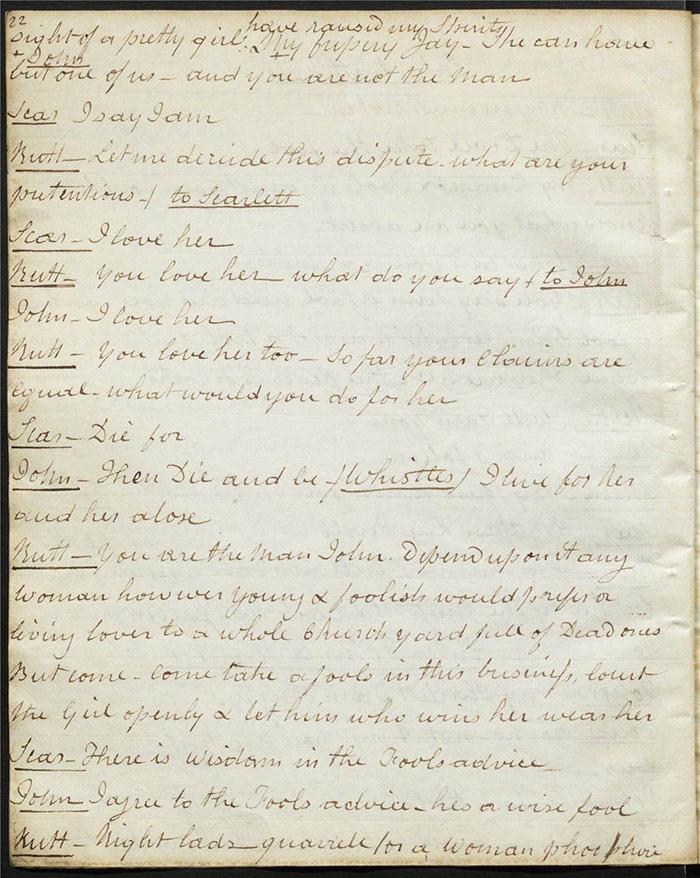 22
have raused my Spirits
sight of a pretty girl. My fripery Jay - She can have
+ John
but one of us - and you are not the Man
Scar I say I am
Rutt - Let me decide this dispute - what are your
pretentions - / to Scarlett
Scar - I love her
Rutt - You love her - what do you say / to John
John - I love her
Rutt - You love her too - So far your Claims are
equal - what would you do for her
Scar - Die for
John - Then Die and be /Whistles/ I live for her
and her alose
Rutt - You are the Man John. Depend upon it any
Woman however young & foolish would prefer a
living lover to a whole Church yard full of Dead ones
But come - come take a fools in this business, Court
the Girl openly & let him who wins her wear her
Scar - There is wisdom in the Fools advice
John I agree to the Fools advice - hes a wise fool
Rutt - Right lads - quarrele for a Woman phoo